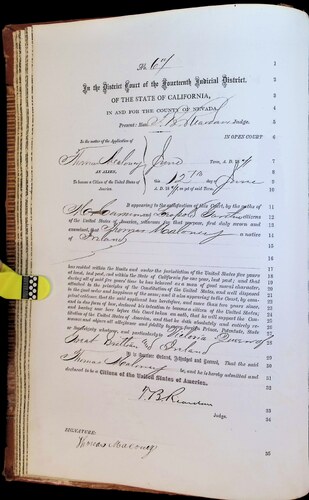 No. 67
In the District Court of the Fourteenth Judicial District.
OF THE STATE OF CALIFORNIA,
IN AND FOR THE COUNTY OF NEVADA,
Present: Hon. T. B. Reardan Judge.
IN OPEN COURT
In the matter of the Application of
Thomas Maloney
AN ALIEN,
To become a Citizen of the United States of America.
June Term, A. D. 18
the 12TH day of June
A. D. 18 of said Term.
It appearing to the satisfaction of this Court, by the oaths of
and citizens
of the United States of America, witnesses for that purpose first duly sworn and
examined, that Thomas Maloney a native
of Ireland
has resided within the limits and under the jurisdiction of the United States five years
at least, last past, and within the State of California for one year, last past; and that
during all of said five years' time he has behaved as a man of good moral character,
attached to the principles of the Constitution of the United States, and well disposed
to the good order and happiness of the same; and it also appearing to the Court, by competent
evidence, that the said applicant has heretofore, and more than two years since,
and in due form of law, declared his intention to become a citizen of the United States,
and having now here before this Court taken an oath, that he will support the Constitution
of the United States of America, and that he doth absolutely and entirely renounce
and abjure all allegiance and fidelity to every foreign Prince, Potentate, State
or Sovereignty whatever, and particularly to Victoria Queen of
Great Britain & Ireland
It is therefore Ordered, Adjudged and Decreed, That the said
Thomas Maloney be, and he is hereby admitted and
declared to be a Citizen of the United States of America.
T. B. Reardan
Judge.
SIGNATURE:
Thomas Maloney
1
2
3
4
5
6
7
8
9
10
11
12
13
14
15
16
17
18
19
20
21
22
23
24
25
26
27
28
29
30
31
32
33
34
35